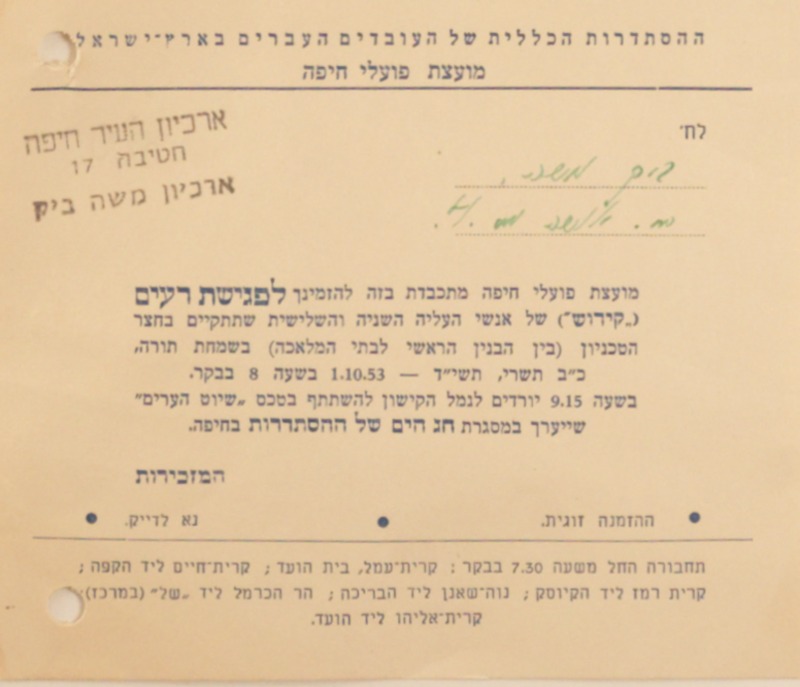 ההסתדרות הכללית של העובדים העברים בארץ־ישראל
מועצת פועלי חיפה
ארכיון העיר חיפה
חטיבה 17
ארכיון משה ביק
לח׳
ביק משה,
מועצת פועלי חיפה מתכבדת בזה להזמינך לפגישת רעים
(„קידוש״) של אנשי העליה השניה והשלישית שתתקיים בחצר
הטכניון (בין הבנין הראשי לבתי המלאכה) בשמחת תורה,
כ״ב תשרי, תשי״ד — 1.10.53 בשעה 8 בבקר.
בשעה 9.15 יורדים לנמל הקישון להשתתף בטכס „שיוט הערים״
שייערך במסגרת חג הים של ההסתדרות בחיפה.
המזכירות
● ההזמנה זוגית. ● נא לדייק. ●
תחבורה החל משעה 7.30 בבקר : קרית־עמל, בית הועד ; קרית־חיים ליד הקפה ;
קרית רמז ליד הקיוסק ; נוה־שאנן ליד הבריכה ; הר הכרמל ליד „של״ (במרכז)
קרית־אליהו ליד הועד.